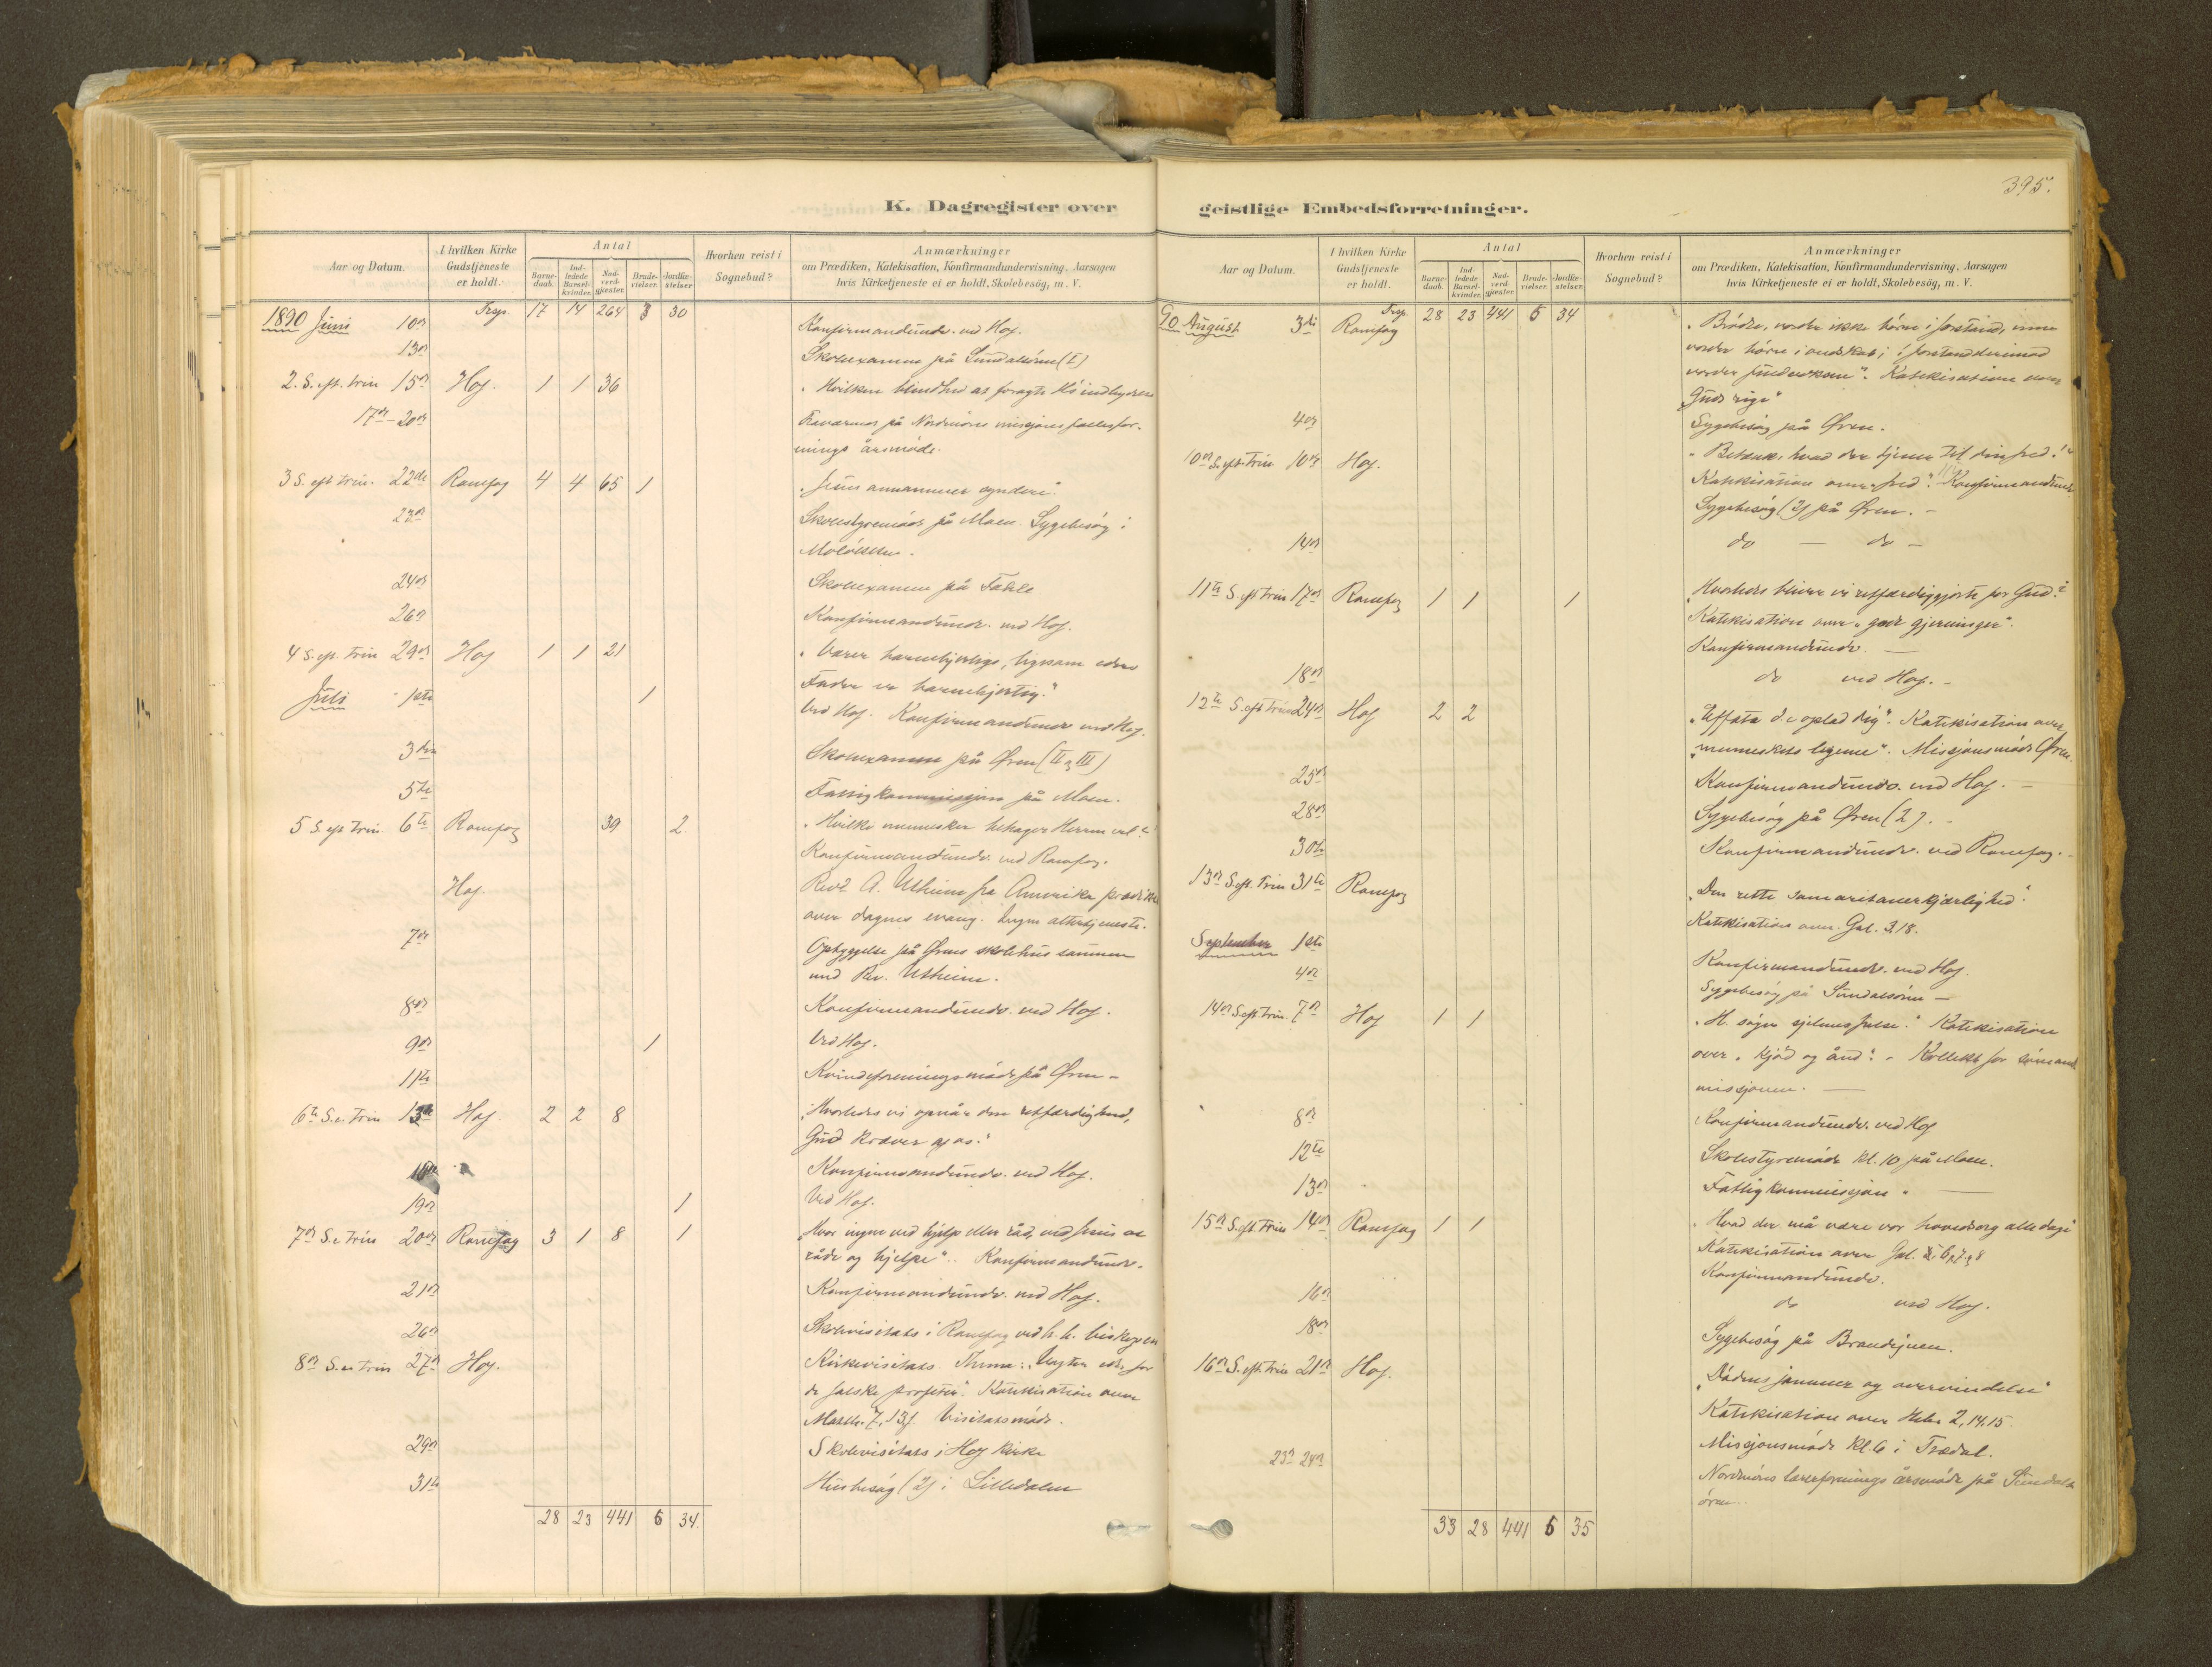 K. Dagregister over
Aar og Datum.
I hvilken Kirke Gudstjeneste er holdt.
Antal
Barne-daab.
Ind-ledede Barsel-kvinder.
Nad-verd-gjæster.
Brude-vielser.
Jordfæ-stelser.
Hvorhen reist i Sognebud?
Anmærkninger
om Prædiken, Katekisation, Konfirmandundervisning, Aarsagen
hvis Kirketjeneste ei er holdt, Skolebesøg, m. V.
Trsp. 17 14 264 3 30
1890 Juni 10de Konfirmandundv. ved Hof.
13de Skoleexamen på Sundalsören (I)
2. S. eft. trin 15de Hof. 1 1 36 "Hvilken blindhed at foragte Hs indbydelse
17de - 20de Fraværende på Nordmöres missjonsfællesfor-
enings årsmöde.
3 S. eft trin. 22de Romfog 4 4 65 1 "Jesus annammer syndere".
23de Skolestyremöde på Moen. Sygebesög i
24de Skoleexamen på Fahle
26de Konfirmandundv. ved Hof.
4 S. eft. Trin 29de Hof 1 1 21 "Værer barmhjertige, ligesom eders
Fader er barmhjertig."
Juli 1ste 1 Ved Hof. Konfirmandundv. ved Hof.
3die Skoleexamen på Øren (II og III)
5te Fattigkommissjon på Moen.
5 S. eft Trin 6te Romfog 39 2. "Hvilke mennesker behager Herren vel?"
Konfirmandundv. ved Romfog.
Hof. Revd A. Utheim fra Amerika prædiker
over dagens evang. Ingen altertjeneste.
7de Opbyggelse på Ørens skolehus sammen
med Rev. Utheim.
8de Konfirmandundv. ved Hof.
9de 1 Ved Hof.
11te Kvindeforeningsmöde på Øren -
6te S. e. Trin 13de Hof. 2 2 8 "Hvorledes vi opnår den retfærdighed,
Gud kræver af os."
Konfirmandundv. ved Hof.
19de 1 Ved Hof.
7de S. e Trin 20de Romfog 3 1 8 1 "Hvor ingen ved hjelp eller råd, ved Jesus at
råde og hjelpe". Konfirmandundv.
21de Konfirmandundv. ved Hof.
26de Skolevisitats i Romfog ved h. h. biskopen
8de S. e. Trin 27de Hof. Kirkevisitats. Thema: "Vogter eder for
de falske profeter". Katekisation over
Matth. 7, 13f. Visitatsmöde.
29de Skolevisitats i Hof kirke
31te Husbesög (2) i Lilledalen
28 23 441 6 34.
395.
geistlige Embedsforretninger.
Aar og Datum.
I hvilken Kirke Gudstjeneste er holdt.
Antal
Barne-daab.
Ind-ledede Barsel-kvinder.
Nad-verd-gjæster.
Brude-vielser.
Jordfæ-stelser.
Hvorhen reist i Sognebud?
Anmærkninger
om Prædiken, Katekisation, Konfirmandundervisning, Aarsagen
hvis Kirketjeneste ei er holdt, Skolebesøg, m. V.
Trsp. 28 23 441 6 34
90 August 3die Romfog "Brödre, vorder ikke börn i forstand, men
vorder börn i ondskab; i forstand derimod
vorder fuldvoksne". Katekisation over
"Guds rige"
4de Sygebesög på Øren.
10de S. eft. Trin 10de Hof. "Betænk, hvad der tjener til din fred!"
Katekisation over "fred". Konfirmandundv.
Sygebesög (2) på Øren. -
14de do - do -
11te S. eft trin 17de Romfog 1 1 1 "Hvorledes bliver vi retfærdiggjorte for Gud?"
Katekisation over "gode gjerninger".
Konfirmandundv.
18de do ved Hof. -
12te S. eft Trin 24de Hof 2 2 "Effata d. e oplad dig". Katekisation over
"menneskets legeme". Missjonsmöde Øren.
25de Konfirmandundv. ved Hof. -
28de Sygebesög på Øren (2). -
30te Konfirmandundv. ved Romfog. -
13de S. eft. Trin 31te Romfog "Den rette samaritanerkjærlighed".
Katekisation over Gal. 3.18.
September 1ste Konfirmandundv. ved Hof.
4de Sygebesög på Sundalsören -
14de S. eft. trin. 7de Hof 1 1 Katekisation
over "kjöd og ånd". - Kollekt for sömands-
missjonen. -
8de Konfirmandundv. ved Hof
12te Skolestyremöde kl. 10 på Moen.
13de Fattigkommissjon "
15de S. eft. Trin 14de Romfog 1 1 "Hvad der må være vor hovedsorg alle dage"
Katekisation over Gal. 6, 7, 8
Konfirmandundv.
16de do ved Hof.
18de Sygebesög på
16de S. eft. trin 21de Hof. "Dödens jammer og overvindelse"
Katekisation over Hebr 2, 14.15.
Missjonsmöde kl. 6 i Trædal.
23de 24de Nordmöres lærerforenings årsmöde på Sundals-
ören.
33 28 441 6 35